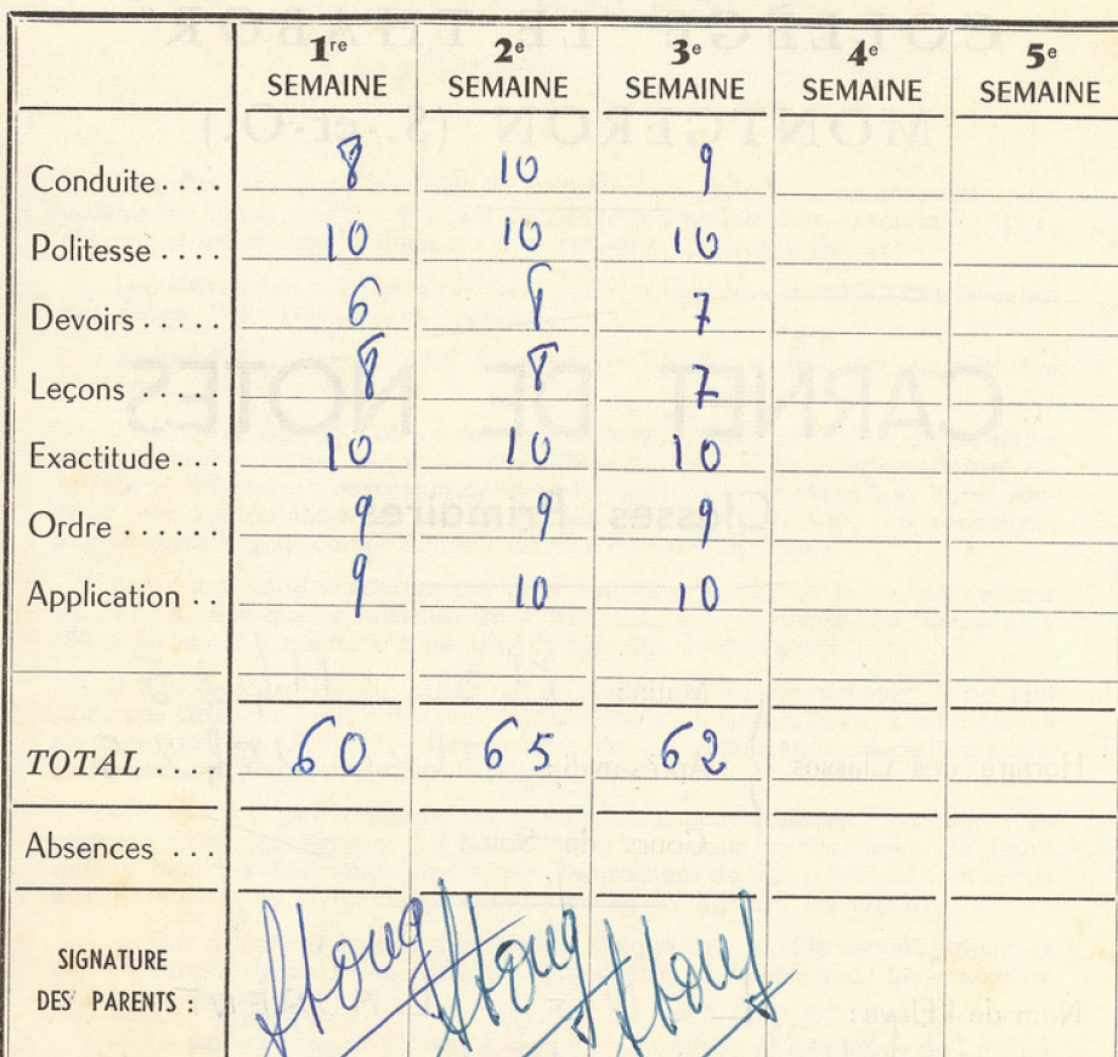 1re SEMAINE 2e SEMAINE 3e SEMAINE 4e SEMAINE 5e SEMAINE
Conduite.... 8 10 9
Politesse .... 10 10 10
Devoirs ..... 6 8 7
Leçons ..... 8 8 7
Exactitude... 10 10 10
Ordre ..... 9 9 9
Application .. 9 10 10
TOTAL .... 60 65 62
Absences ...
SIGNATURE
DES PARENTS :